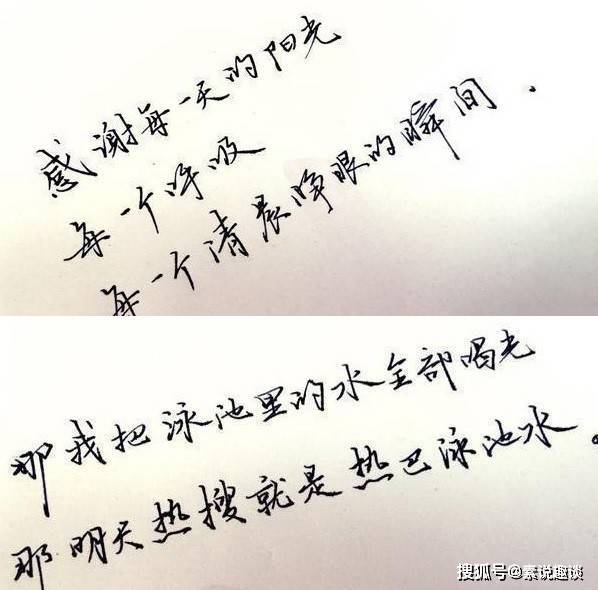 感谢每一天的阳光
每一个呼吸
每一个清晨睁眼的瞬间.
那我把泳池里的水全部喝光
那明天热搜就是热巴泳池水。
搜狐号@素说趣谈